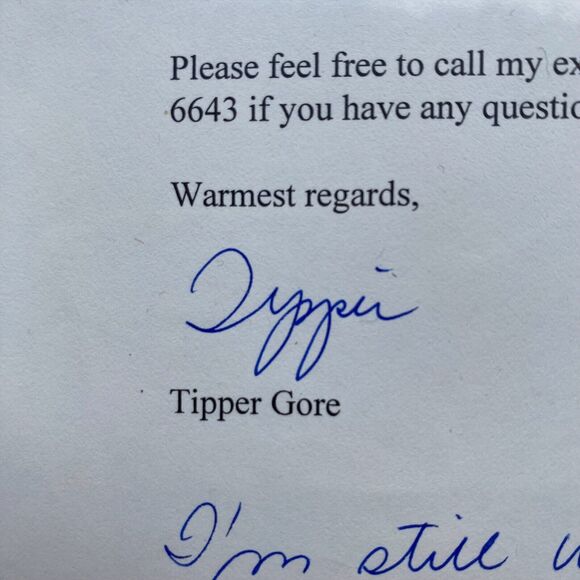 Please feel free to call my
6643 if you have any
Warmest regards,
Tipper
Tipper Gore
I'm still